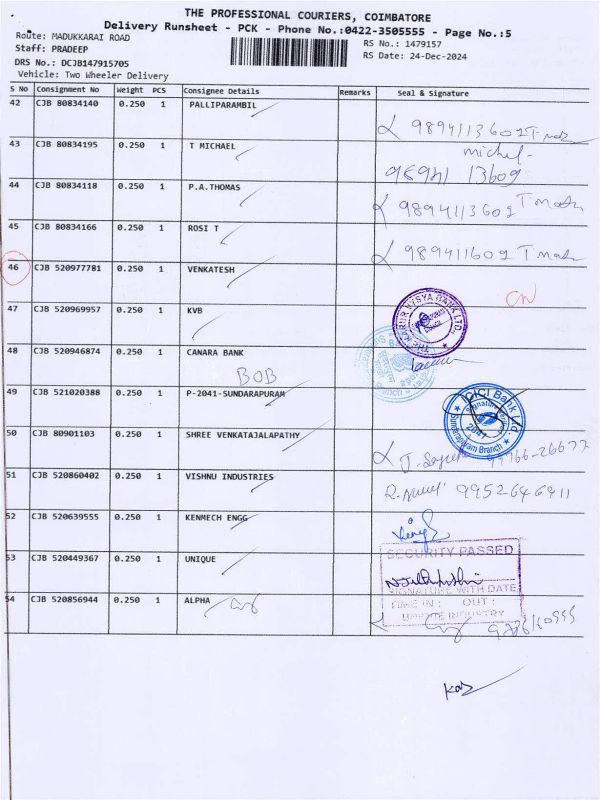 THE PROFESSIONAL COURIERS, COIMBATORE
Delivery Runsheet - PCK - Phone No.:0422-3505555 - Page No.:5
Route: MADUKKARAI ROAD
RS No.: 1479157
Staff: PRADEEP
RS Date: 24-Dec-2024
DRS No.: DCJB147915705
Vehicle: Two Wheeler Delivery
S No Consignment No Weight PCS Consignee Details Remarks Seal & Signature
42 CJB 80834140 0.250 1 PALLIPARAMBIL
43 CJB 80834195 0.250 1 T MICHAEL
michel-
98941 13609
44 CJB 80834118 0.250 1 P.A.THOMAS
45 CJB 80834166 0.250 1 ROSI T
46 CJB 520977781 0.250 1 VENKATESH
47 CJB 520969957 0.250 1 KVB
THE KARUR VYSYA BANK LTD.
48 CJB 520946874 0.250 1 CANARA BANK
BOB
49 CJB 521020388 0.250 1 P-2041-SUNDARAPURAM
ICICI Bank Ltd.
Sundarapuram Branch
50 CJB 80901103 0.250 1 SHREE VENKATAJALAPATHY
51 CJB 520860402 0.250 1 VISHNU INDUSTRIES
9952646911
52 CJB 520639555 0.250 1 KENMECH ENGG
53 CJB 520449367 0.250 1 UNIQUE
SECURITY PASSED
SIGNATURE WITH DATE
TIME IN : OUT :
UNIQUE INDUSTRY
54 CJB 520856944 0.250 1 ALPHA